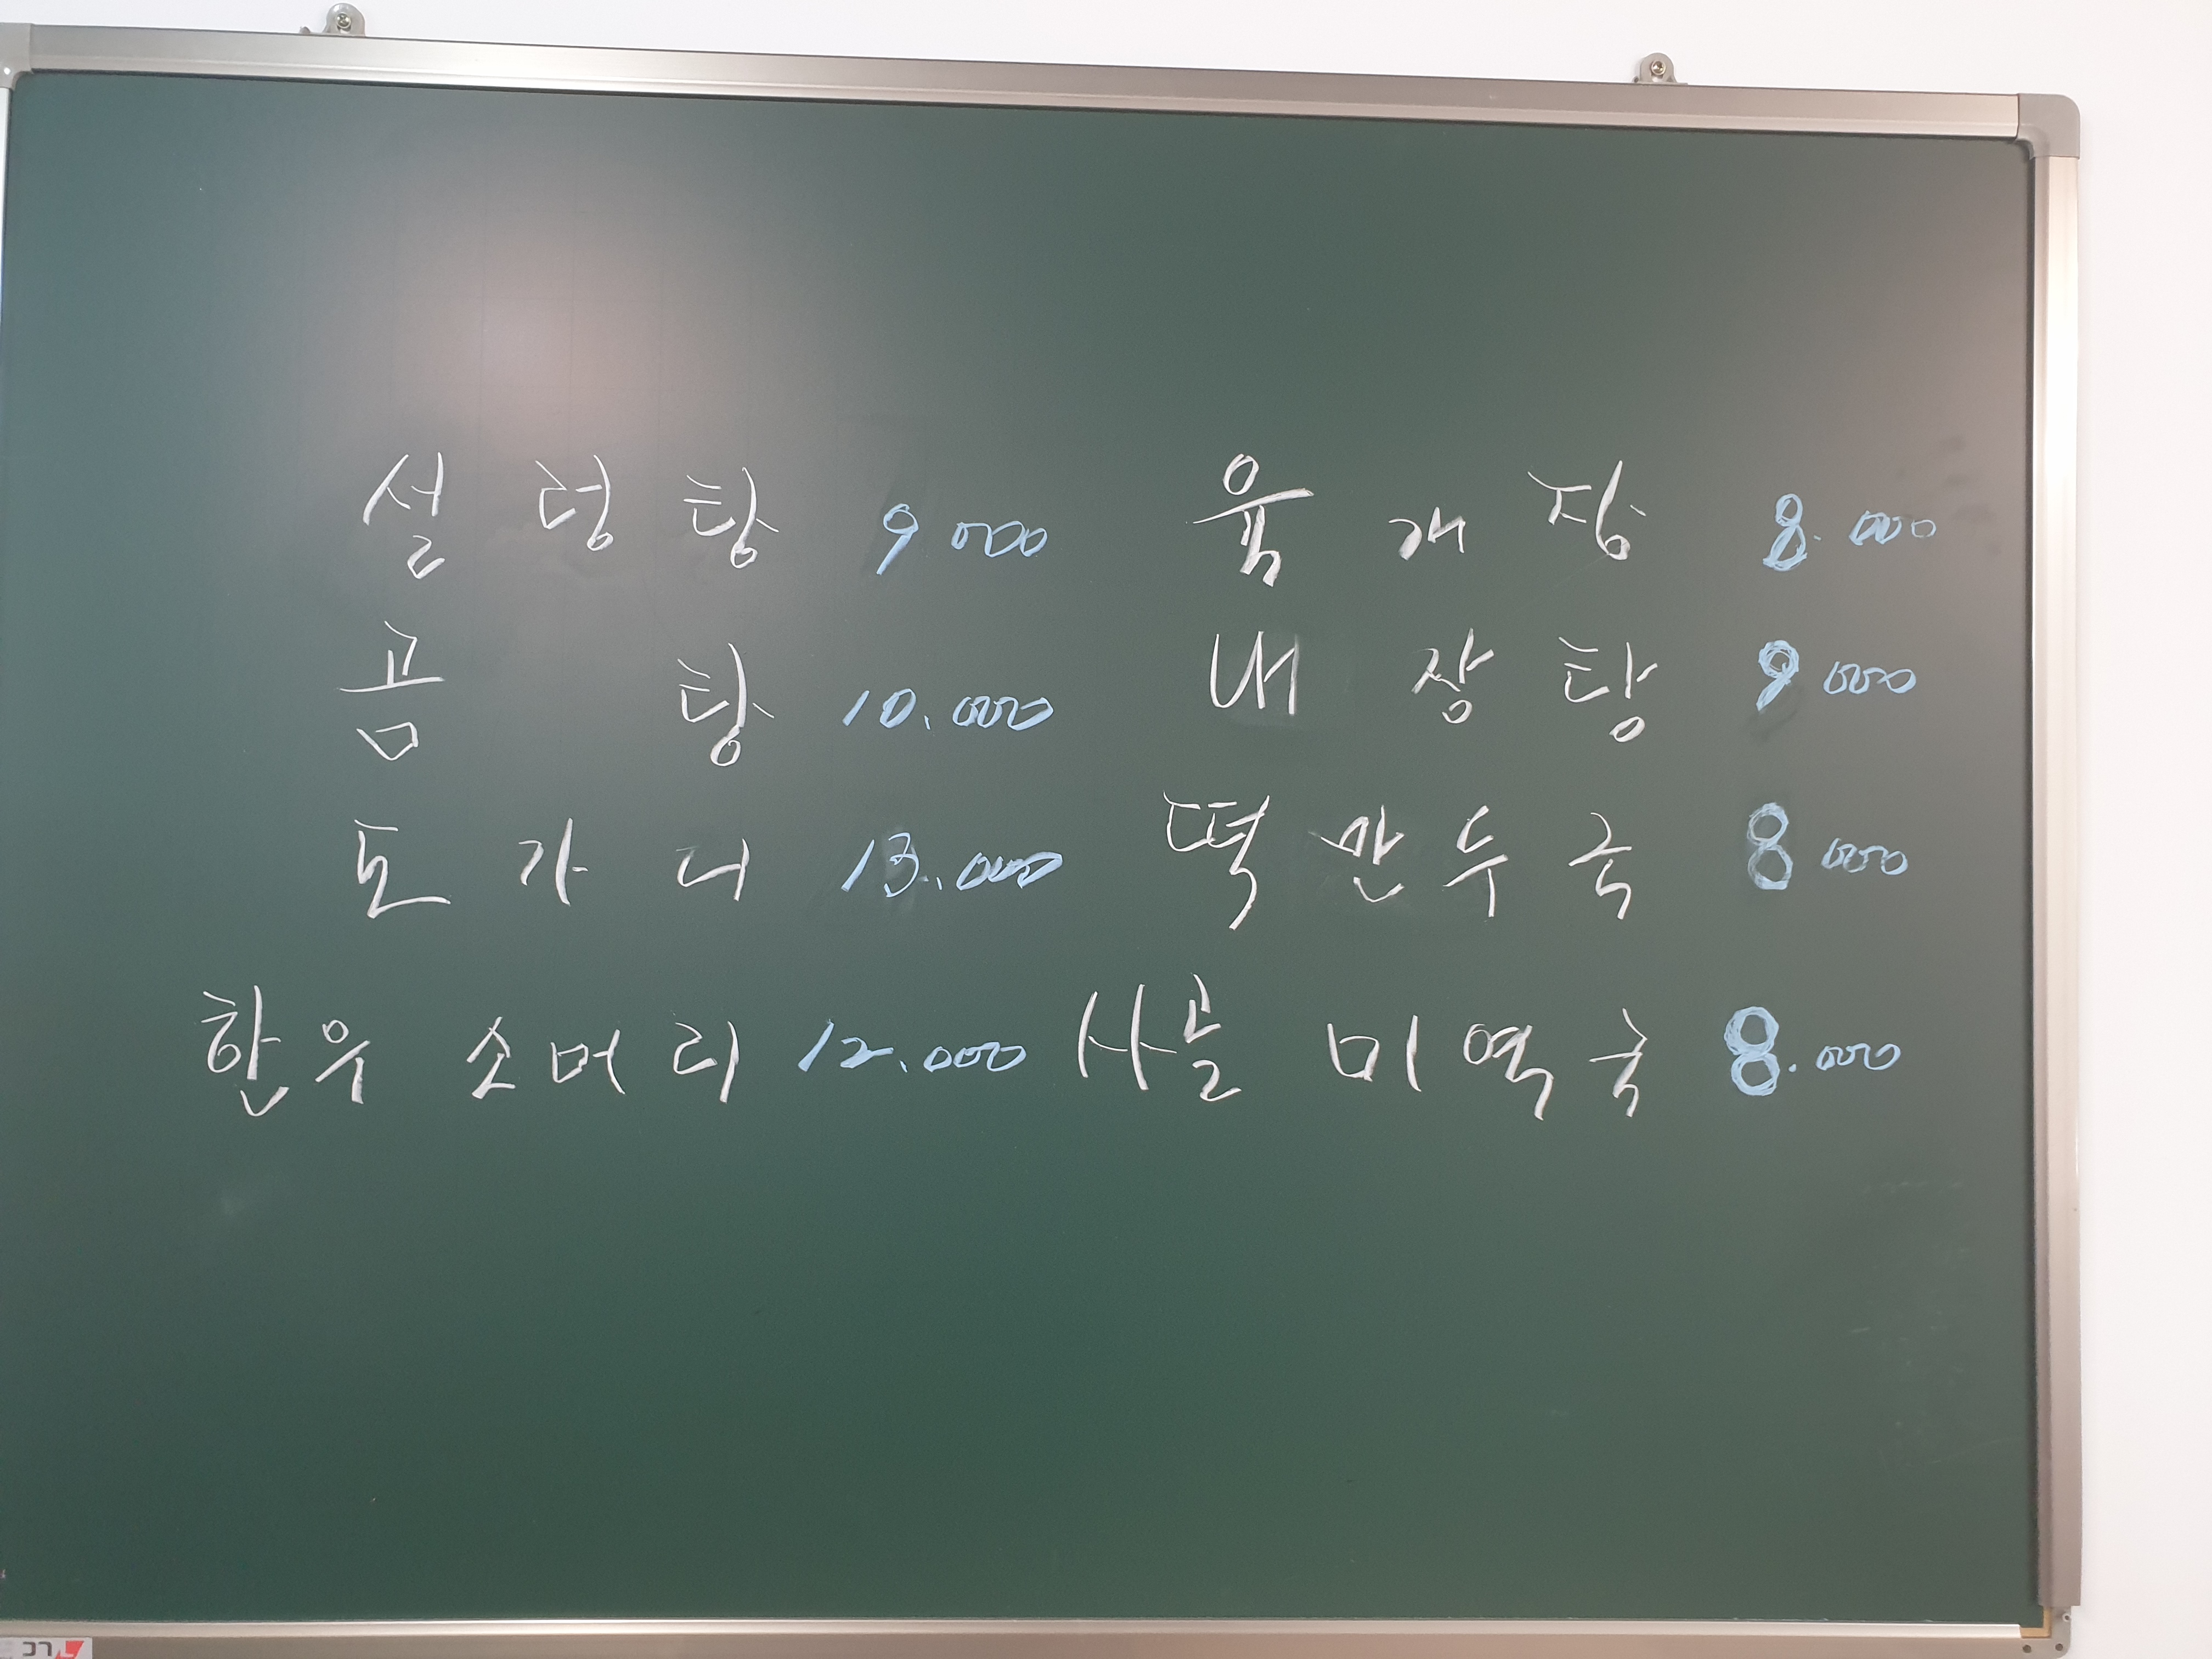 설렁탕 9000 육개장 8.000
곰탕 10.000 내장탕 9000
도가니 13.000 떡만두국 8000
한우 소머리 12.000 사골 미역국 8.000